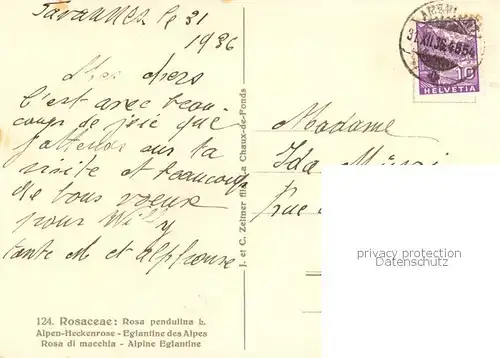 Tavannes le 31
1936
Mes chers
c'est avec beau-
coup de joie que
j'attends sur ta
visite et beaucoup
de bons voeux
pour Willy
tante M et Alphonse
124. Rosaceae: Rosa pendulina L.
Alpen-Heckenrose - Eglantine des Alpes
Rosa di macchia - Alpine Eglantine
J. et C. Zeltner fils, La Chaux-de-Fonds
31.XII.36
10
HELVETIA
Madame
Ida
Rue
privacy protection
Datenschutz